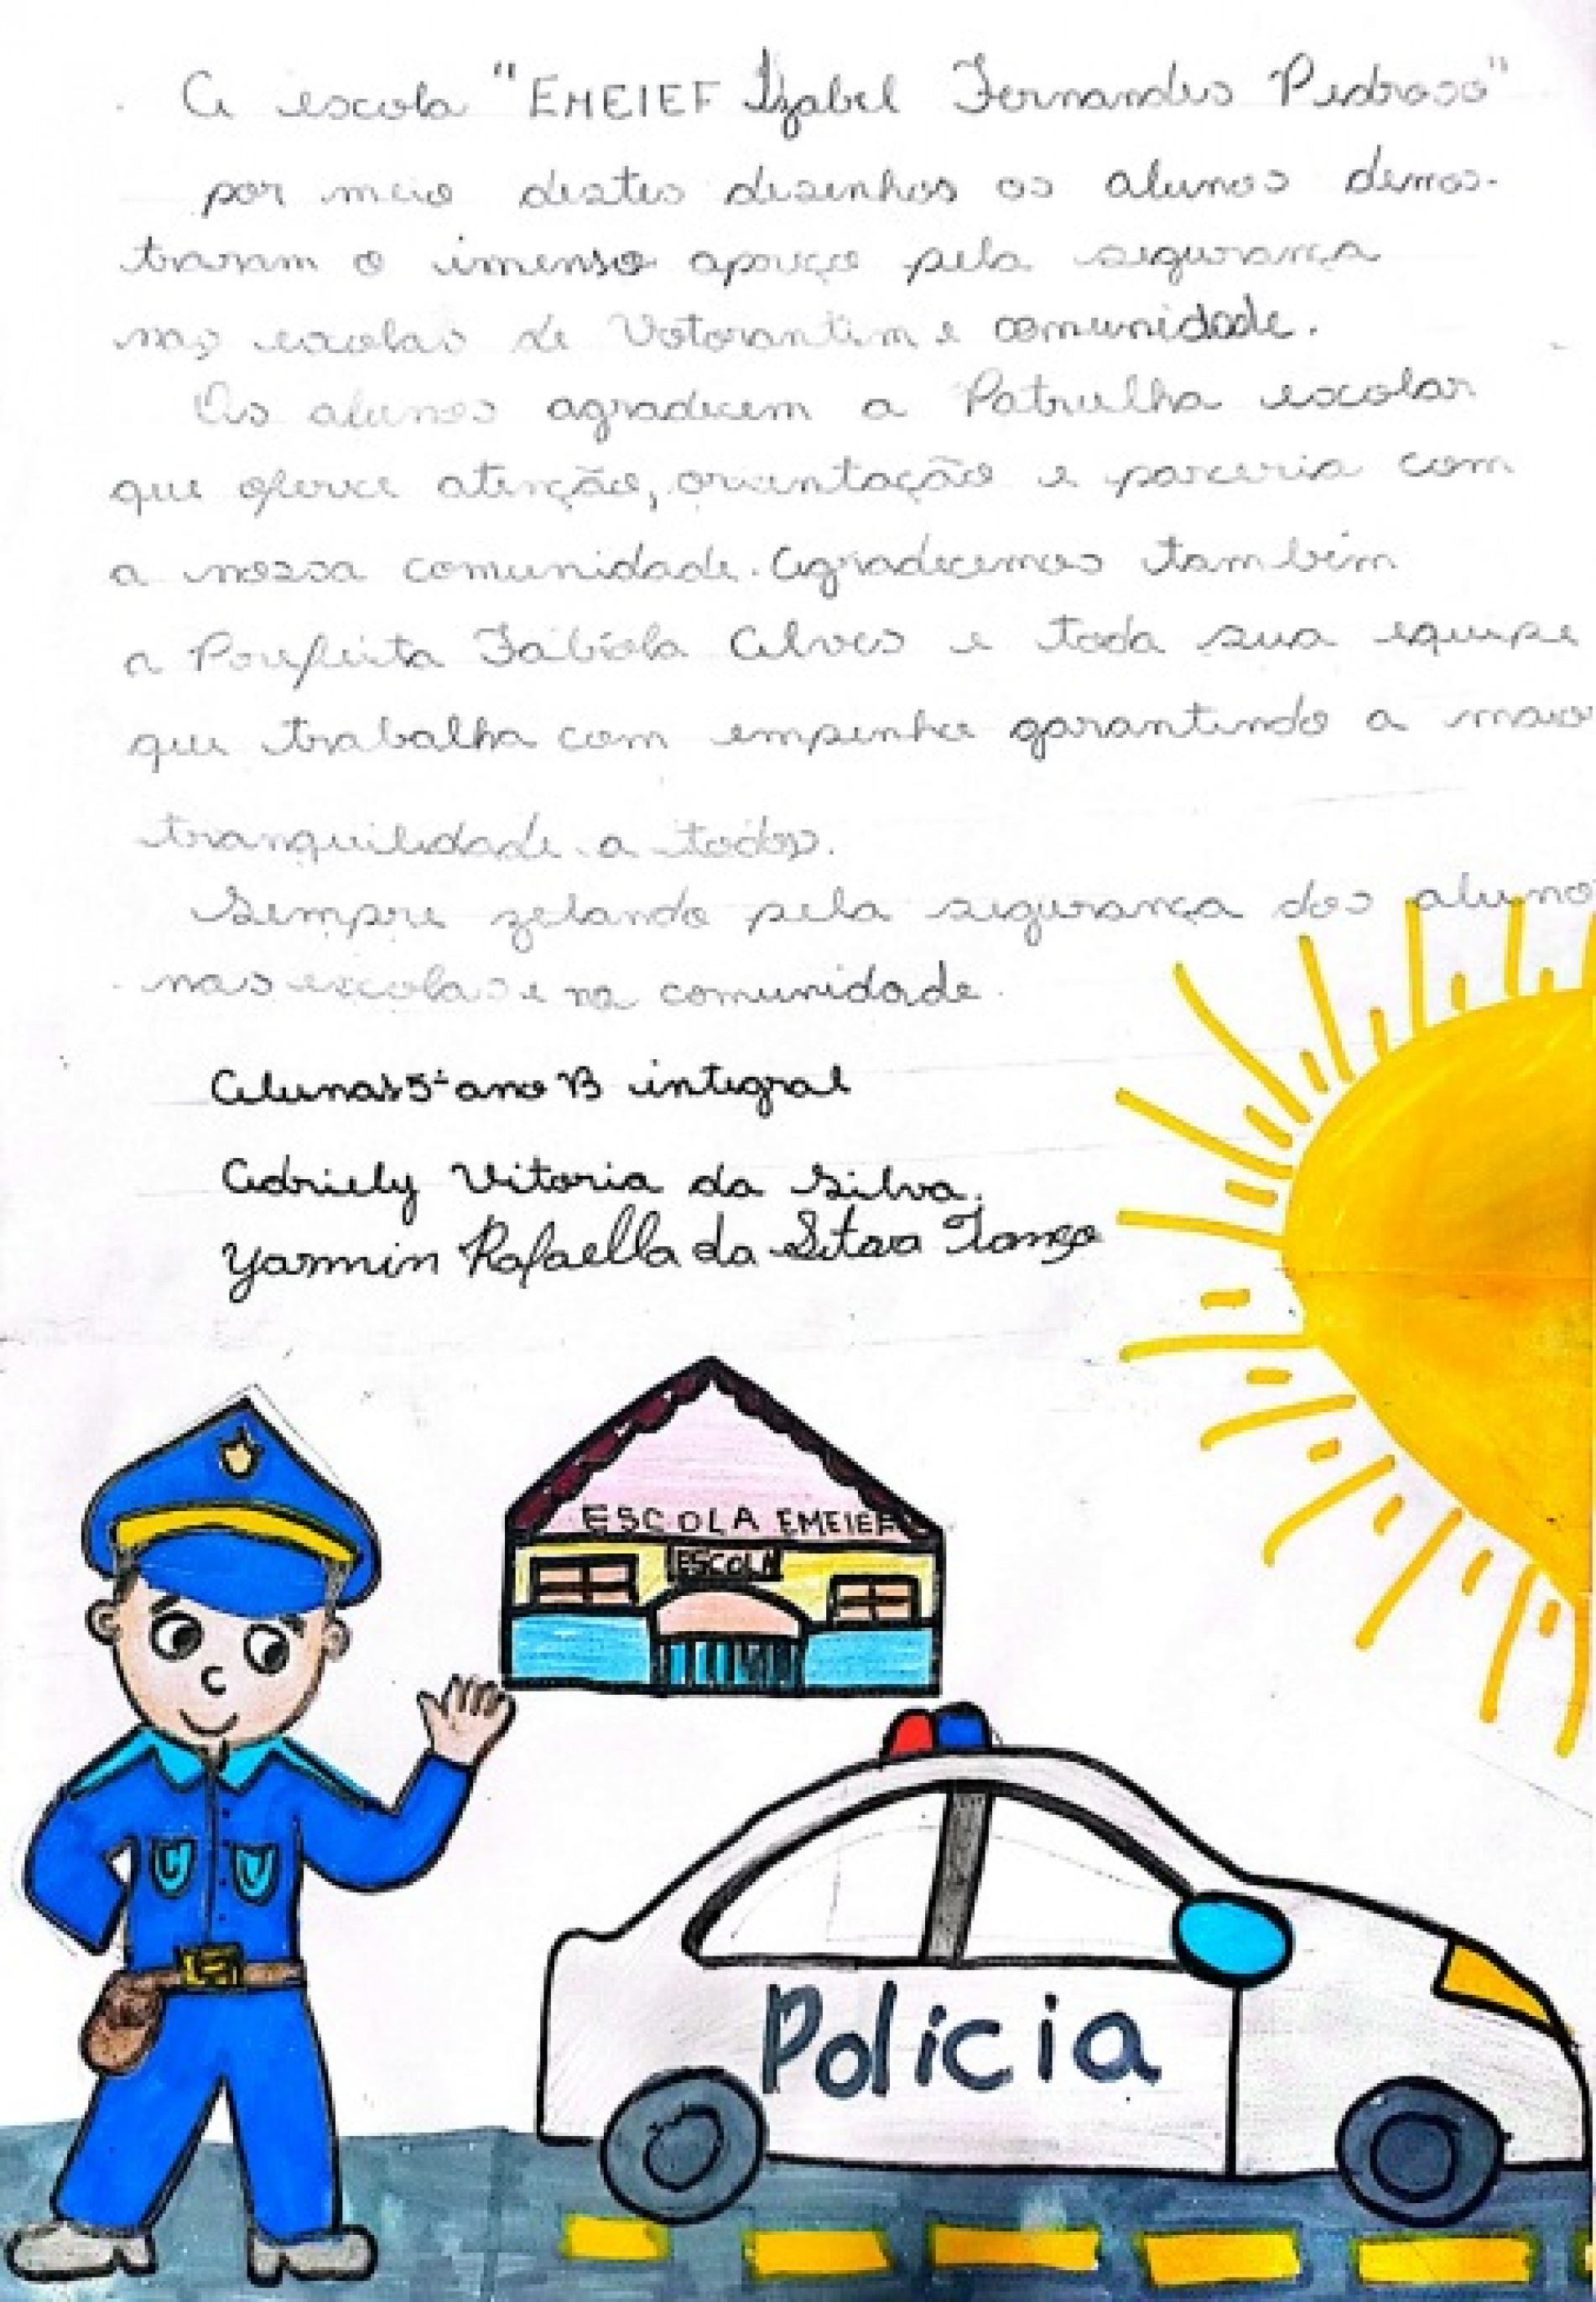 A escola "EMEIEF Izabel Fernandes Pedroso"
por meio destes desenhos os alunos demos-
traram o imenso apreço pela segurança
nas escolas de Votorantim e comunidade.
Os alunos agradecem a Patrulha escolar
que oferece atenção, orientação e parceria com
a nossa comunidade. Agradecemos também
a Prefeita Fabíola Alves e toda sua equipe
que trabalha com empenho garantindo a maior
tranquilidade a todos.
Sempre zelando pela segurança dos aluno
nas escolas e na comunidade.
Alunas 5º ano B integral
Adriely Vitoria da Silva.
Yasmin Rafaella da
ESCOLA EMEIEF
ESCOLA
Policia